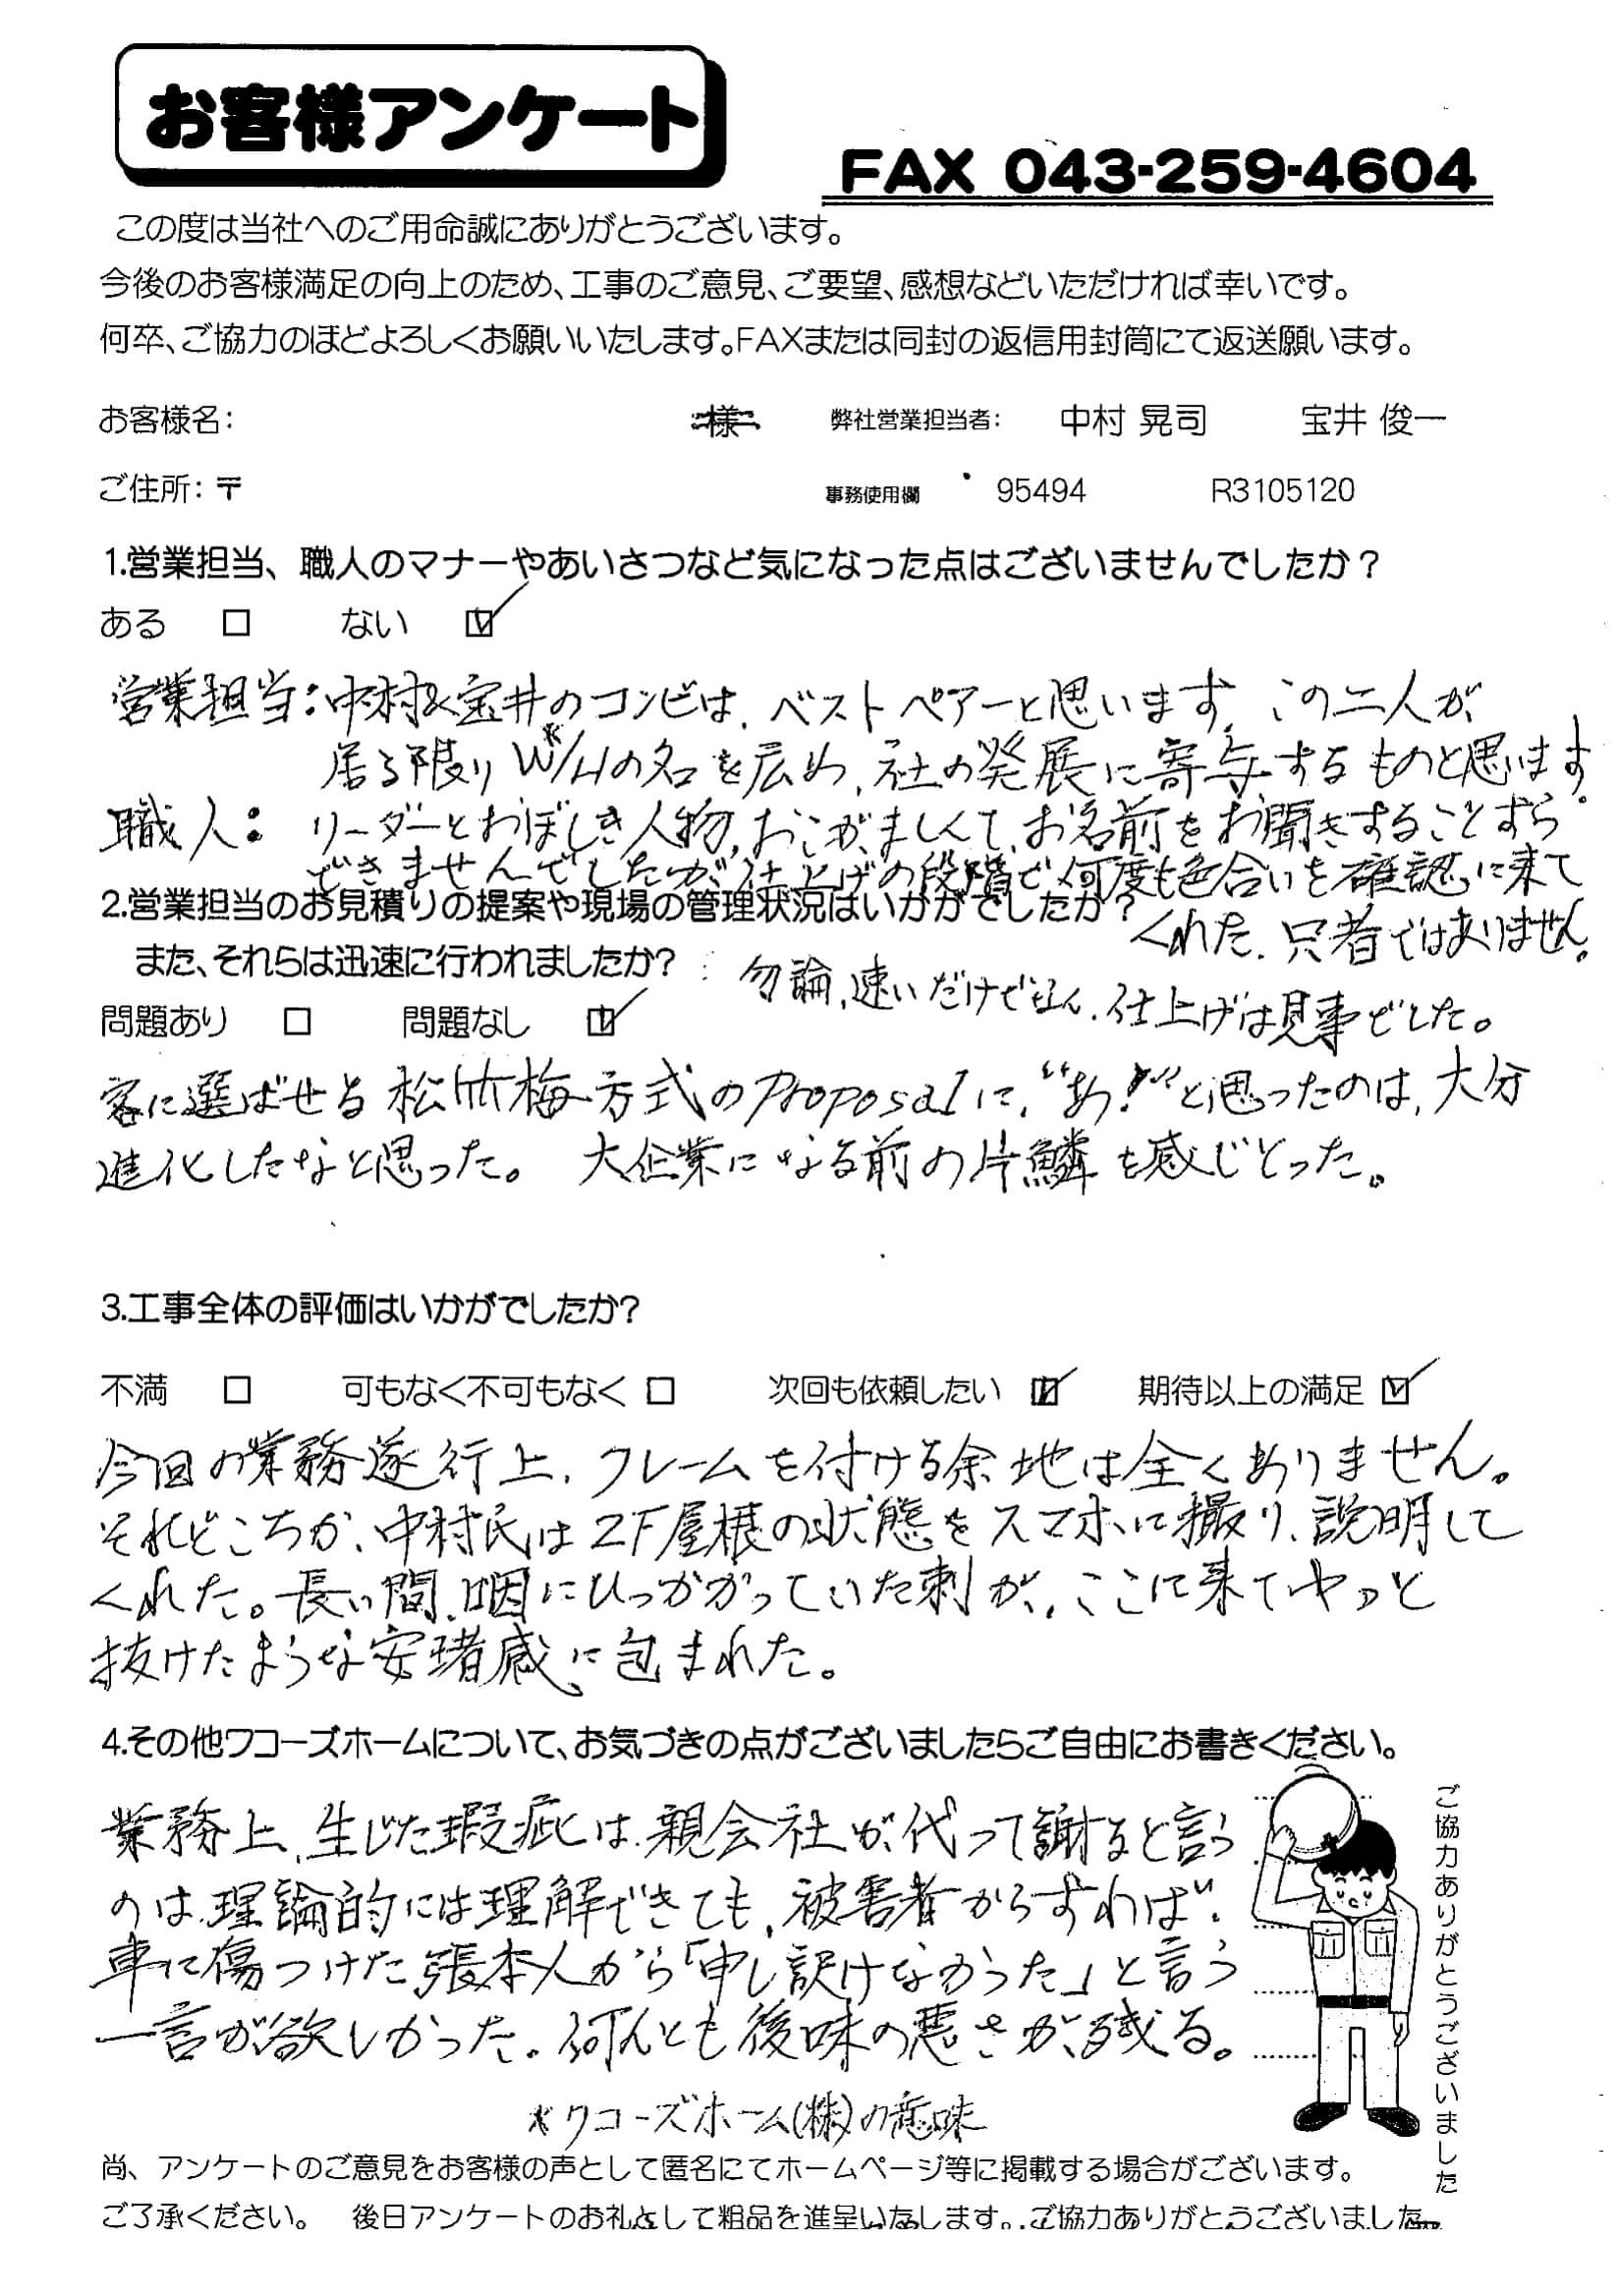 お客様アンケート
FAX 043-259-4604
この度は当社へのご用命誠にありがとうございます。
今後のお客様満足の向上のため、工事のご意見、ご要望、感想などいただければ幸いです。
何卒、ご協力のほどよろしくお願いいたします。FAXまたは同封の返信用封筒にて返送願います。
お客様名: 様 弊社営業担当者: 中村 晃司 宝井 俊一
ご住所: 〒 事務使用欄 95494 R3105120
1.営業担当、職人のマナーやあいさつなど気になった点はございませんでしたか？
ある □ ない ☑
営業担当:中村&宝井のコンビは、ベストペアーと思います。この二人が
居る限り W/H*の名を広め、社の発展に寄与するものと思います。
職人: リーダーとおぼしき人物、おこがましくて、お名前をお聞きすることすら
できませんでしたが、仕上げの段階で何度も色合いを確認に来て
くれた。只者ではありません。
2.営業担当のお見積りの提案や現場の管理状況はいかがでしたか？
また、それらは迅速に行われましたか?
: 勿論、速いだけで
仕上げは見事でした。
問題あり □ 問題なし ☑
客に選ばせる松竹梅方式のProposalに、“あ!”と思ったのは、大分
進化したなと思った。 大企業になる前の片鱗を感じとった。
3.工事全体の評価はいかがでしたか?
不満 □ 可もなく不可もなく □ 次回も依頼したい ☑ 期待以上の満足 ☑
今回の業務遂行上、クレームを付ける余地は全くありません。
それどころか、中村氏は2F屋根の状態をスマホに撮り、説明して
くれた。長い間、咽にひっかかっていた刺が、ここに来てヤッと
抜けたような安堵感に包まれた。
4.その他ワコーズホームについて、お気づきの点がございましたらご自由にお書きください。
業務上、生じた瑕疵は、親会社が代って謝すると言う
のは理論的には理解できても、被害者からすれば、
車に傷つけた張本人から「申し訳けなかった」と言う
一言が欲しかった。何んとも後味の悪さが残る。
*ワコーズホーム(株)の意味
ご協力ありがとうございました
尚、アンケートのご意見をお客様の声として匿名にてホームページ等に掲載する場合がございます。
ご了承ください。 後日アンケートのお礼として粗品を進呈いたします。ご協力ありがとうございました。